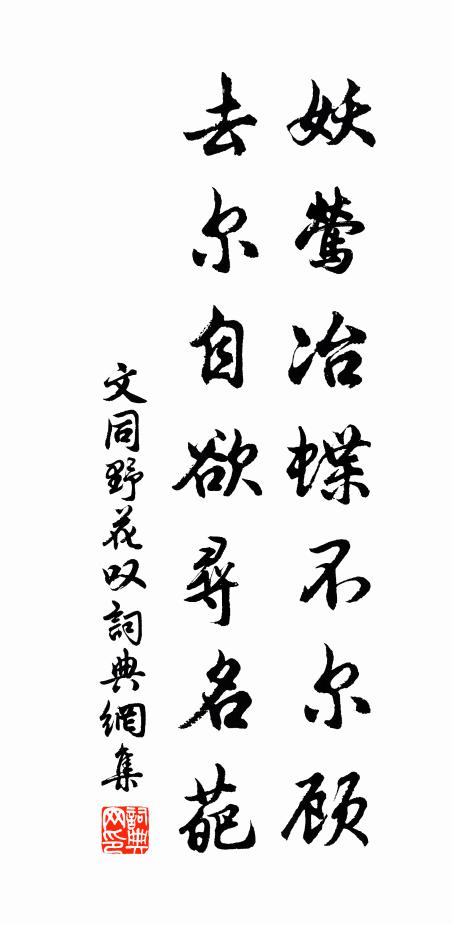 妖莺冶蝶不尔顾
去尔自欲寻名葩
文同野花叹詞典網集
詞典网印